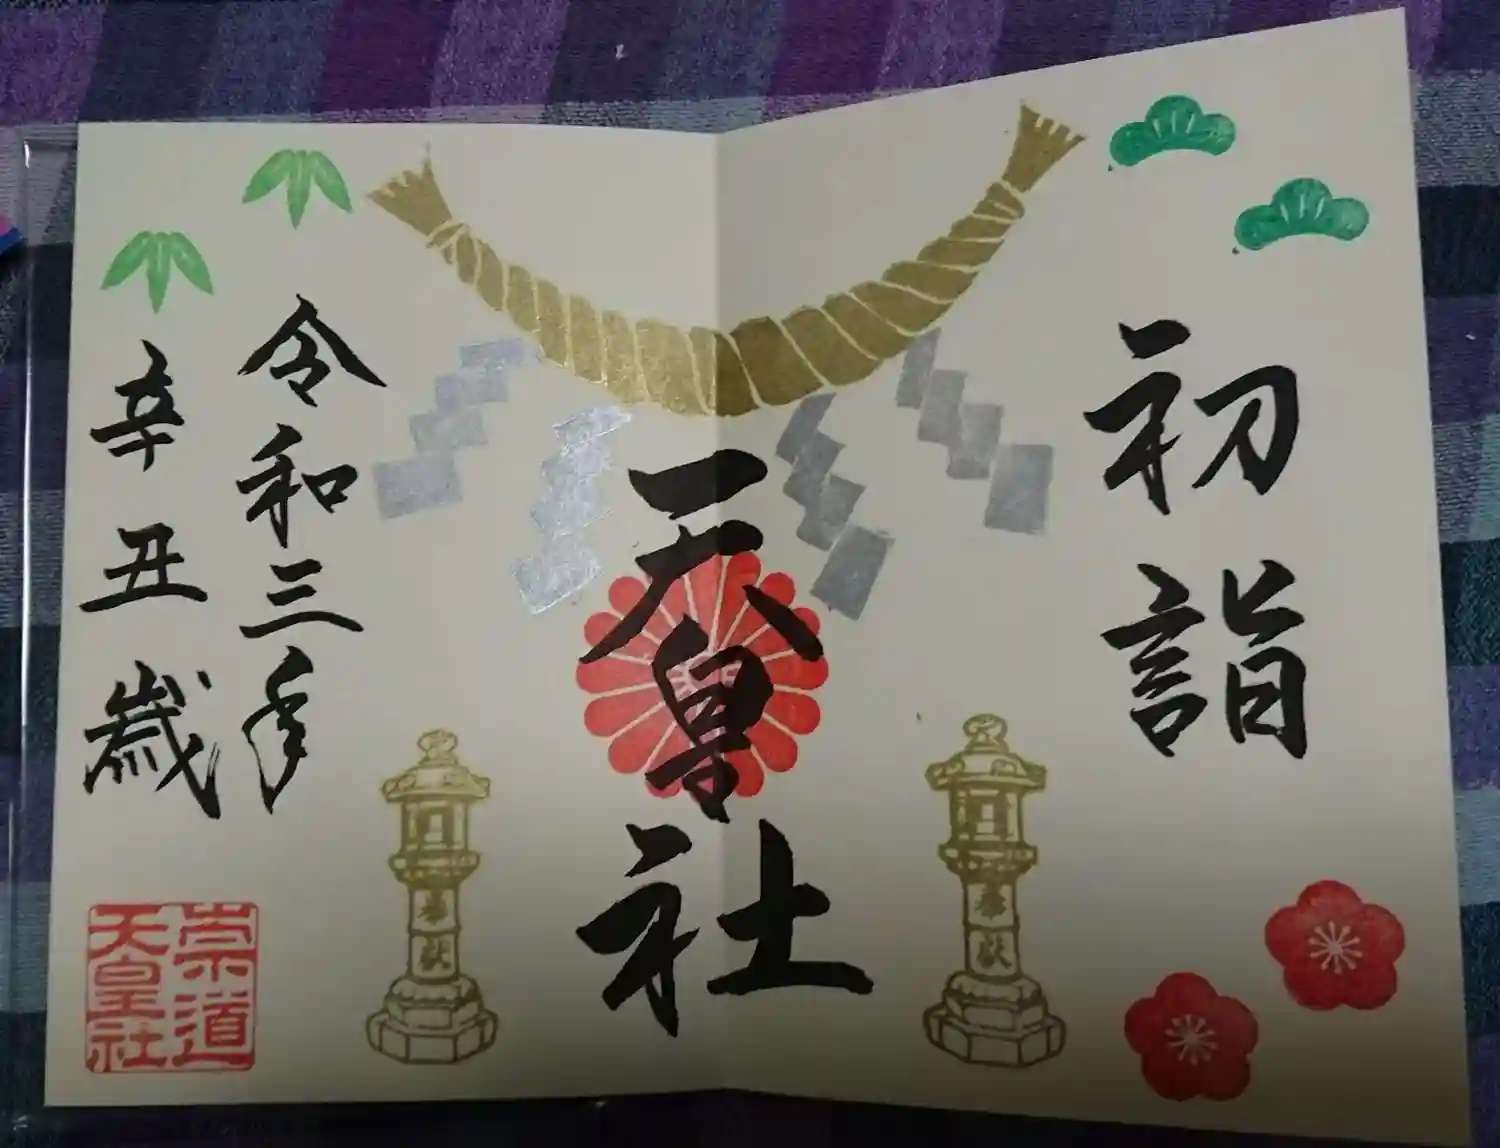 初詣
天皇社
令和三年
辛丑歳
崇道
天皇社
奉献
奉献